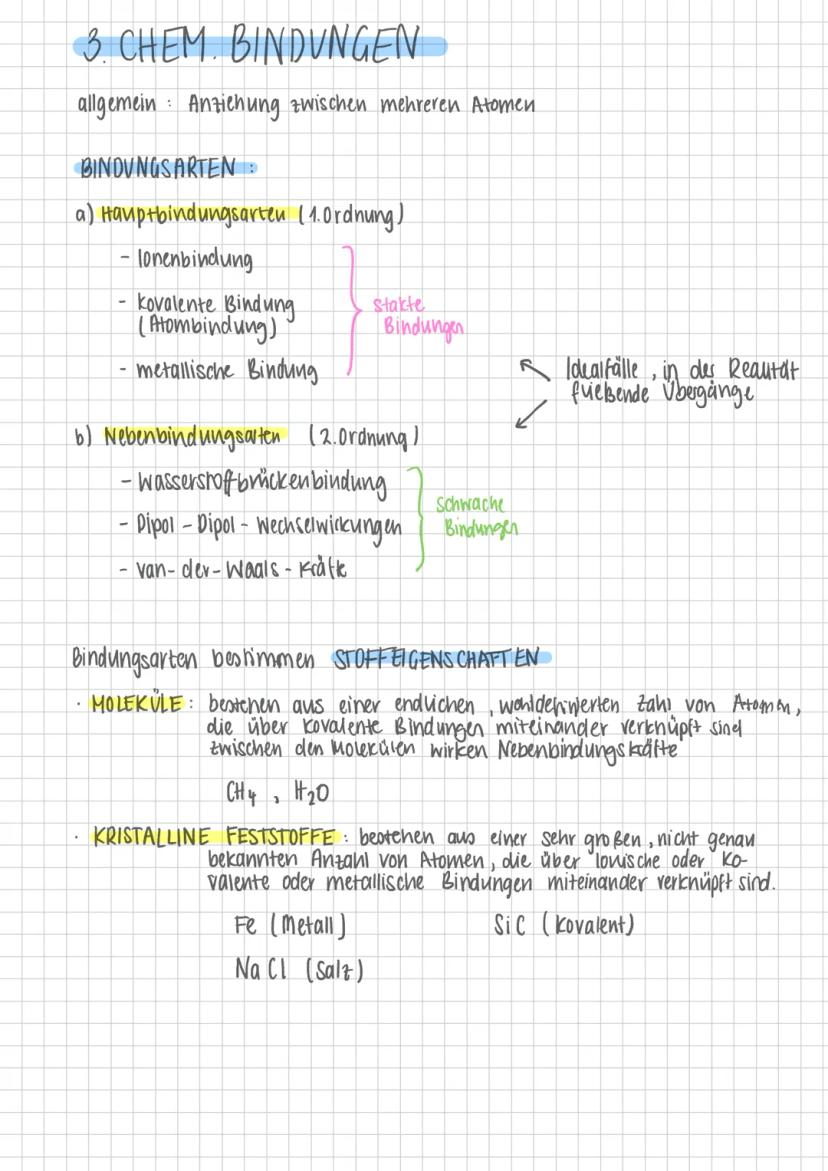 3. CHEM. BINDUNGEN
allgemein : Anziehung zwischen mehreren Atomen
BINDUNGSARTEN :
a) Hauptbindungsarten (1. Ordnung)
- Ionenbindung
- kovalente Bindung
(Atombindung)
- metallische Bindung
starke
Bindungen
Idealfälle , in der Realität
fließende Übergänge
b) Nebenbindungsarten (2. Ordnung)
- Wasserstoffbrückenbindung
- Dipol - Dipol - Wechselwirkungen
- van-der-Waals-Kräfte
schwache
Bindungen
Bindungsarten bestimmen STOFFEIGENSCHAFTEN
· MOLEKÜLE : bestehen aus einer endlichen , wohldefinierten Zahl von Atomen,
die über kovalente Bindungen miteinander verknüpft sind
zwischen den Molekülen wirken Nebenbindungskräfte
CH4 , H2O
· KRISTALLINE FESTSTOFFE : bestehen aus einer sehr großen , nicht genau
bekannten Anzahl von Atomen, die über ionische oder Ko-
valente oder metallische Bindungen miteinander verknüpft sind.
Fe (Metall) SiC (Kovalent)
NaCl (Salz)